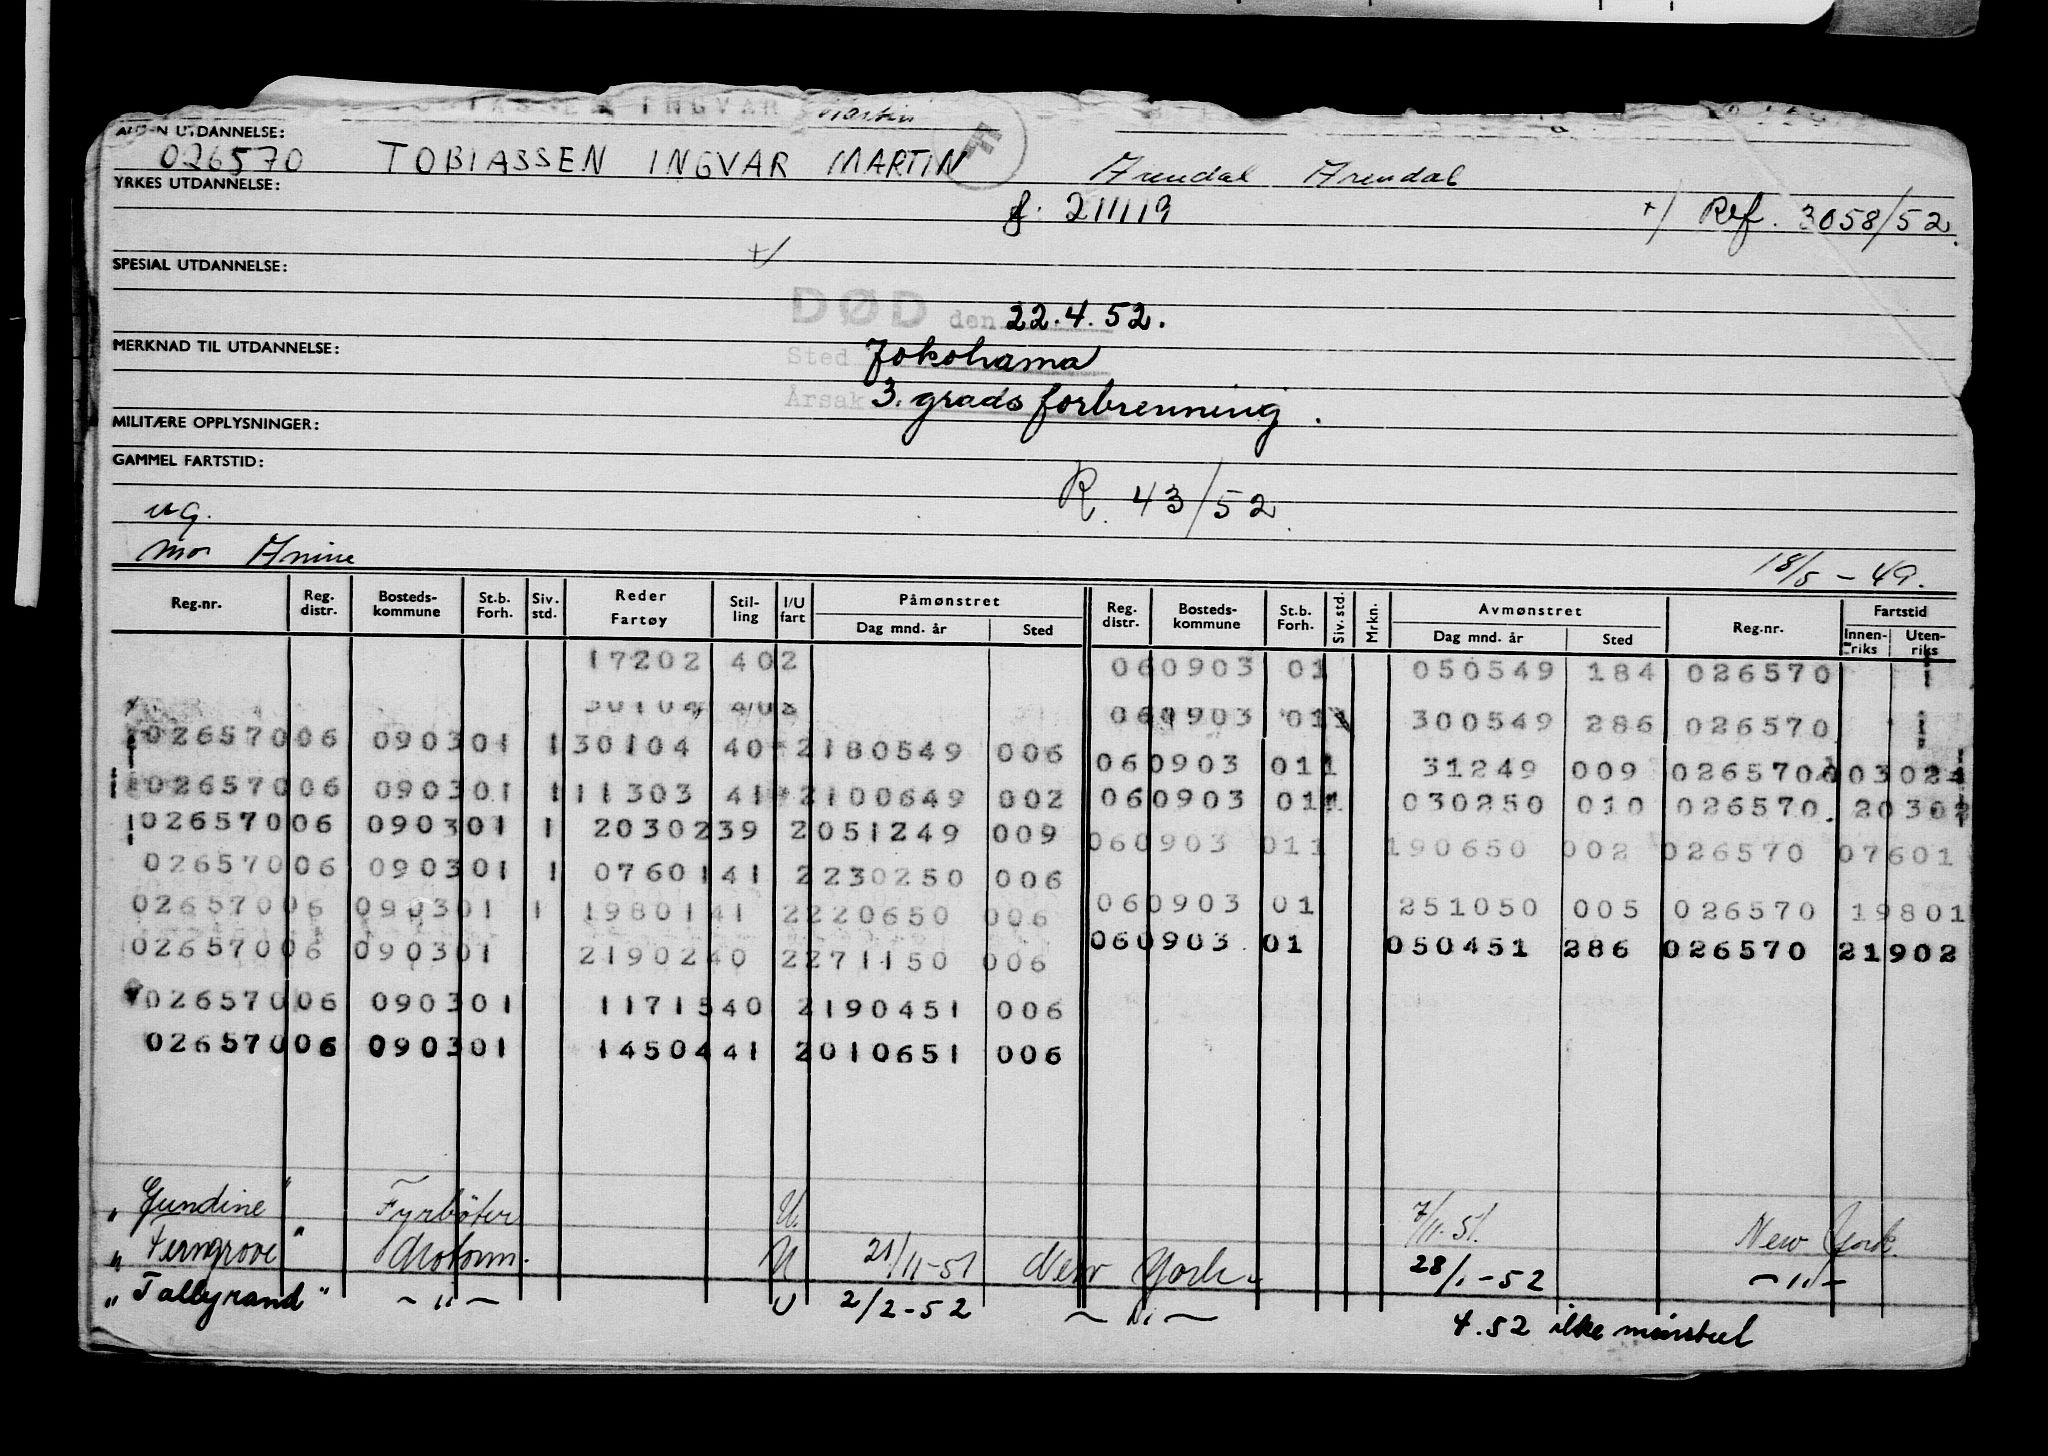 INGVAR Martin
ALM-N UTDANNELSE:
026570 TOBIASSEN INGVAR MARTIN Arendal Arendal
YRKES UTDANNELSE:
f. 211119 +) Ref. 3058/52.
+/
SPESIAL UTDANNELSE:
DØD den 22.4.52.
MERKNAD TIL UTDANNELSE:
Sted Jokohama
Årsak 3. grads forbrenning.
MILITÆRE OPPLYSNINGER:
GAMMEL FARTSTID:
R. 43/52.
ug.
mor Anine 18/5 - 49.
Reg.nr. Reg. distr. Bosteds-kommune St.b. Forh. Siv. std. Reder Fartøy Stil-ling I/U fart Påmønstret Dag mnd. år Sted Reg. distr. Bosteds-kommune St.b. Forh. Siv. std. Mrkn. Avmønstret Dag mnd. år Sted Reg.nr. Fartstid Innen-riks Uten-riks
17202 402 060903 01 050549 184 026570
30104 402 060903 011 300549 286 026570
02657006 090301 1 30104 40 2180549 006 060903 011 31249 009 026570 03024
02657006 090301 1 11303 41 2100649 002 060903 011 030250 010 026570. 20302
02657006 090301 1 2030239 2051249 009 060903 011 190650 002 026570 07601
02657006 090301 1 0760141 2230250 006
02657006 090301 1 1980141 2220650 006 060903 01 251050 005 026570 19801
02657006 090301 2190240 2271150 006 060903 01 050451 286 026570 21902
02657006 090301 1171540 2190451 006
02657006 090301 1450441 2010651 006
"Gundine" Fyrbøter U. 7/11-51. New York.
"Ferngrove" Motorm. U 21/11-51 New York. 28/1-52 - " -
"Tallyrand" - " - U 2/2-52 - " - 4.52 ikke mønstret